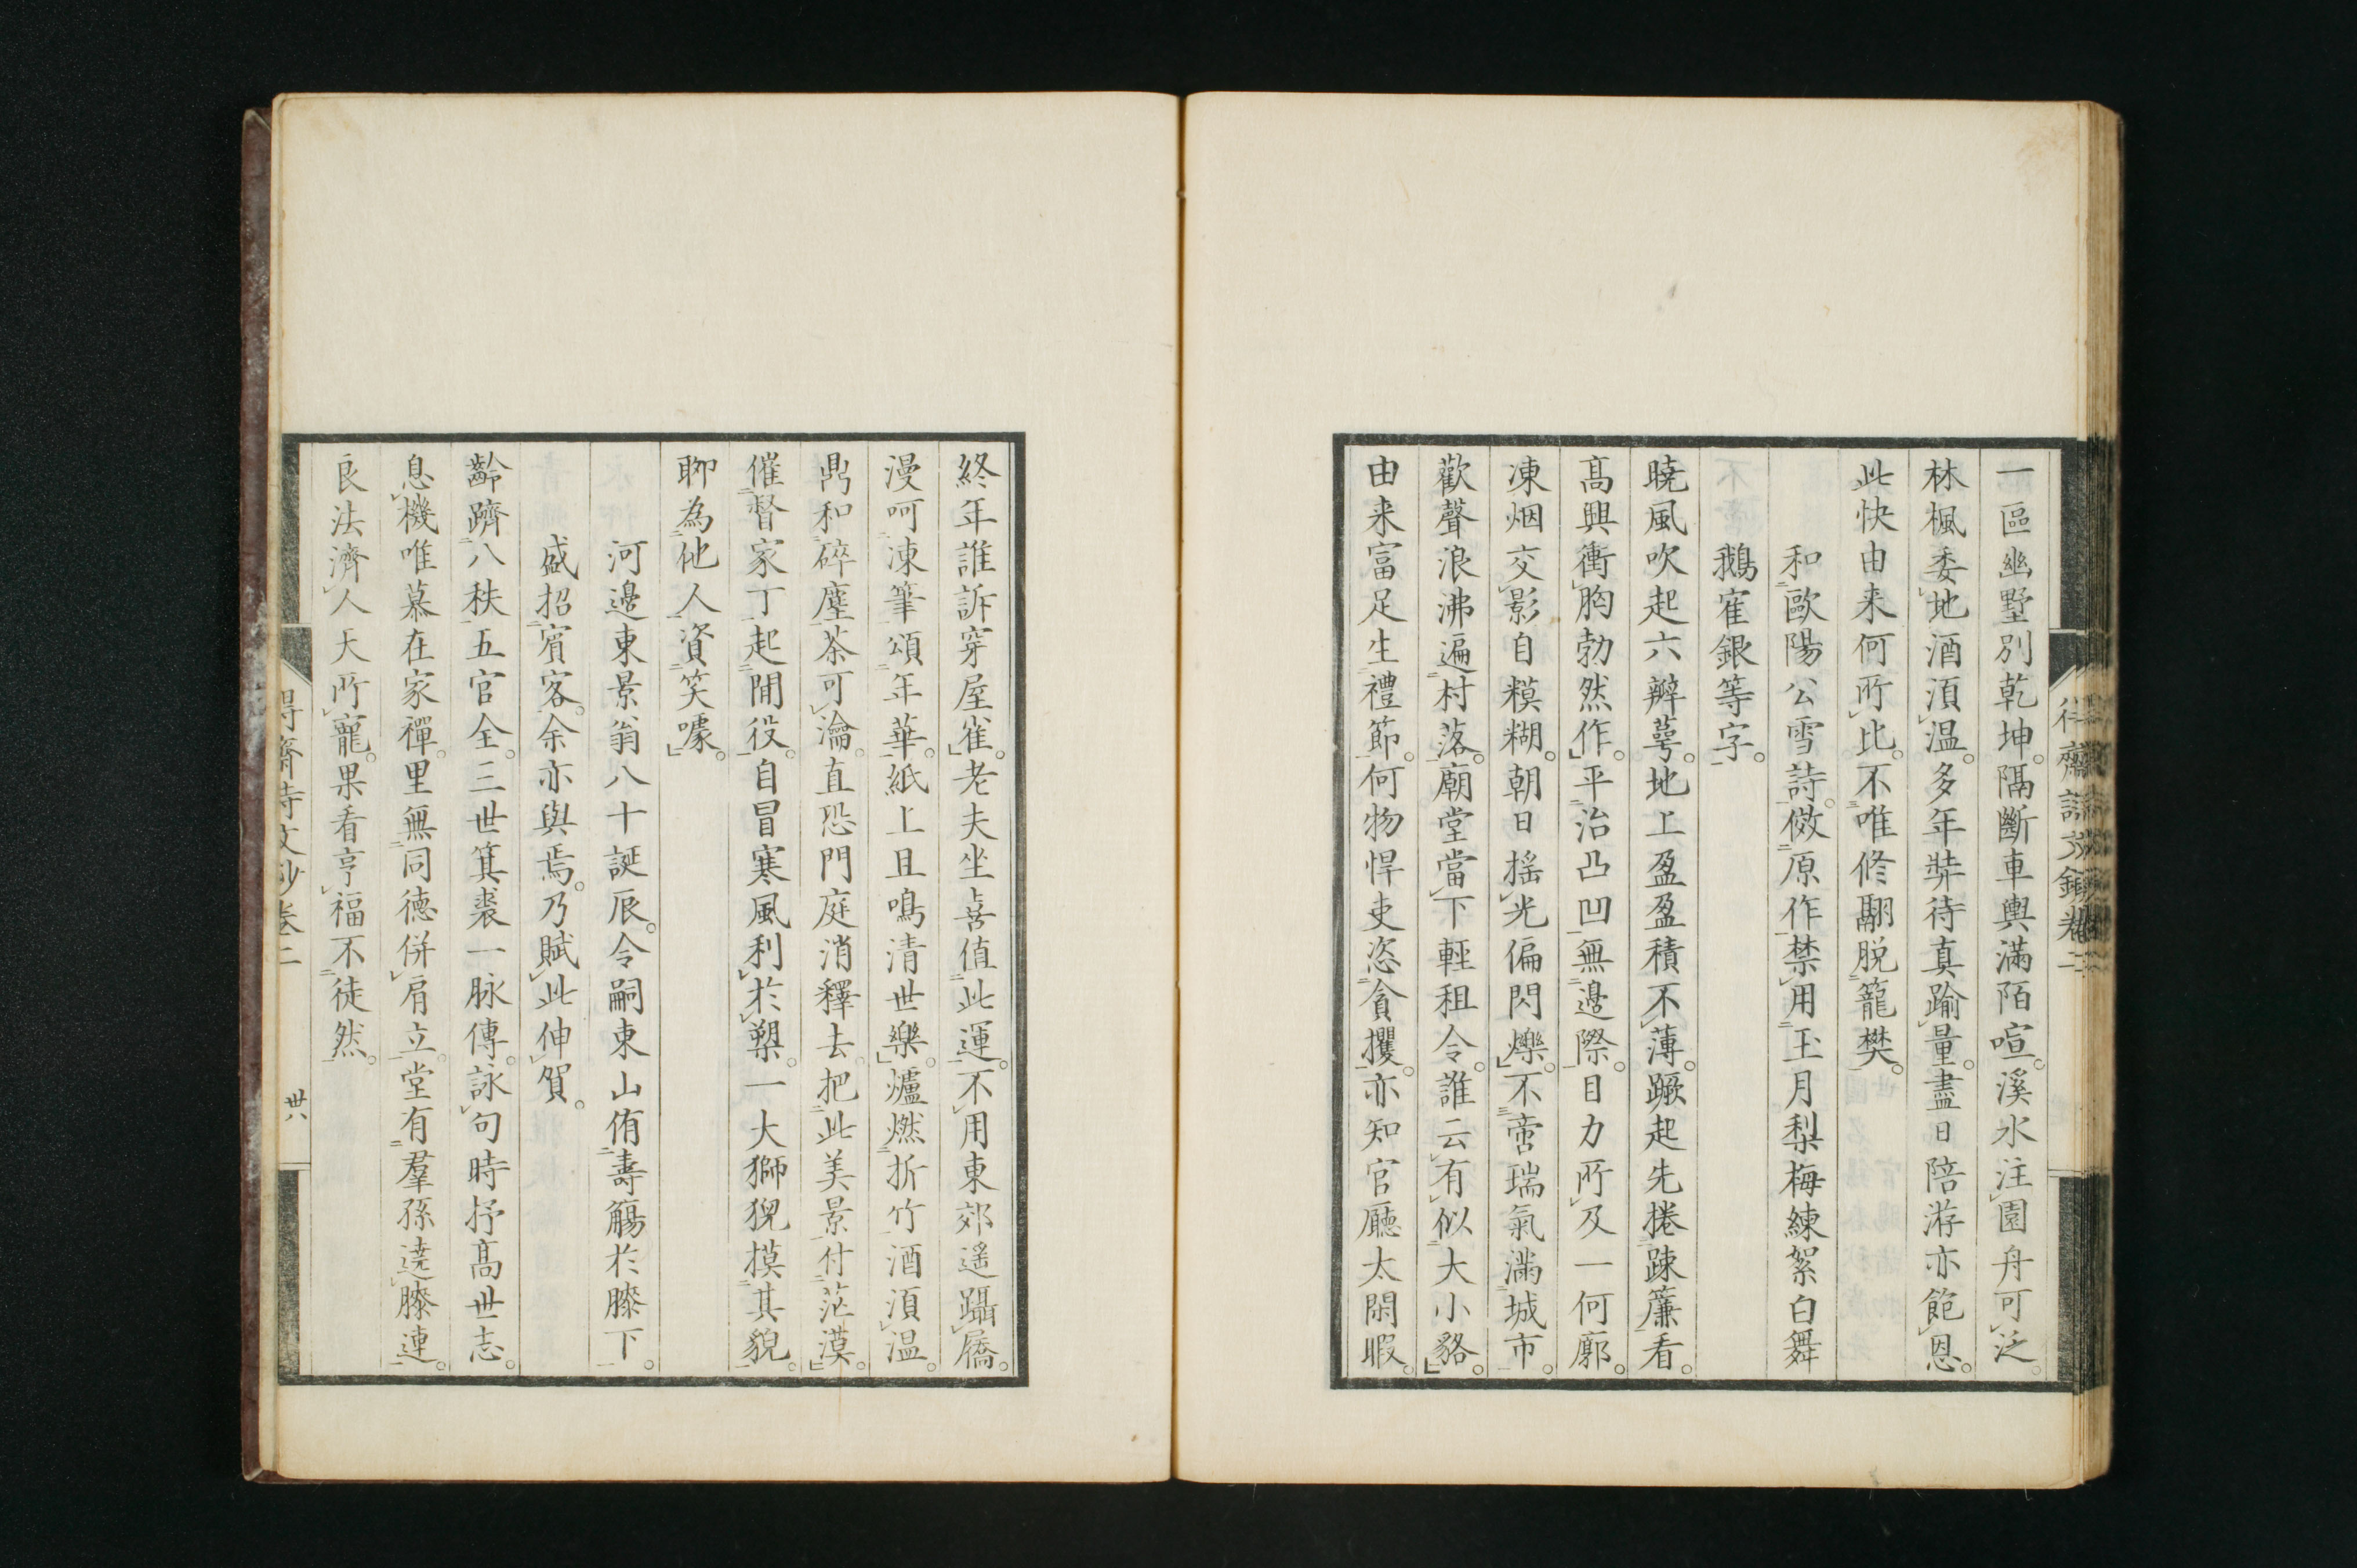 一區幽墅別乾坤。隔斷車輿滿陌喧。溪水注園舟可泛。
林楓委地酒須温。多年弊待真踰量。盡日陪游亦飽恩。
此快由来何所比。不唯修翮脱籠樊。
和歐陽公雪詩。倣原作禁用玉月梨梅練絮白舞
鵝寉銀等字。
曉風吹起六辧蕚。地上盈盈積不薄。蹶起先捲疎簾看。
髙興衝胸勃然作。平治凸凹無邊際。目力所及一何廓。
凍烟交影自糢糊。朝日揺光偏閃爍。不啻瑞氣滿城市。
歡聲浪沸遍村落。廟堂當下輕租令。誰云有似大小貉。
由来富足生禮節。何物悍吏恣貪攫。亦知官廳太閑暇。
終年誰訴穿屋雀。老夫坐喜值此運。不用東郊遥躡屩。
漫呵凍筆頌年華。紙上且鳴清世樂。爐燃折竹酒須温。
鼎和碎塵茶可瀹。直恐門庭消釋去。把此美景付茫漠。
催督家丁起閒役。自冒寒風利於槊。一大獅猊摸其貌。
聊為他人資笑噱。
河邊東景翁八十誕辰。令嗣東山侑壽觴於膝下。
盛招賓客。余亦與焉。乃賦此伸賀。
齡躋八秩五官全。三世箕裘一脉傳。詠句時抒髙世志。
息機唯慕在家禪。里無同德併肩立。堂有羣孫遶膝連。
良法濟人天所寵。果看亨福不徒然。
得齋詩文鈔卷二
丗六